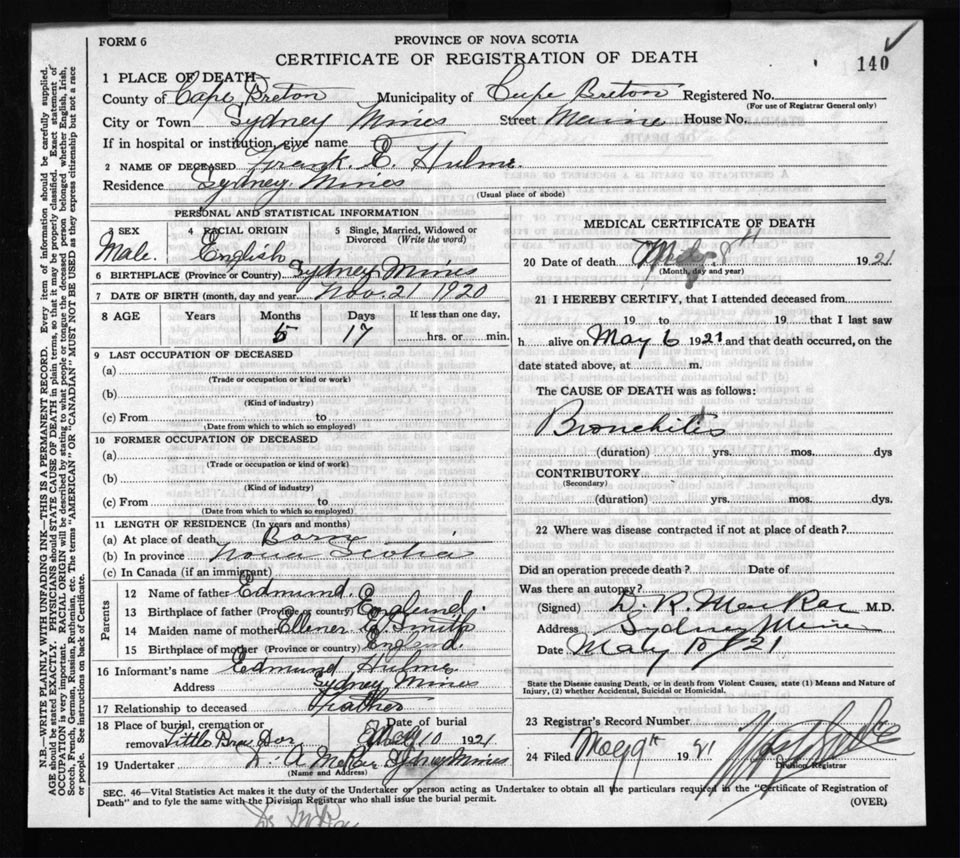 FORM 6
PROVINCE OF NOVA SCOTIA
CERTIFICATE OF REGISTRATION OF DEATH
140
1 PLACE OF DEATH—
County of Cape Breton Municipality of Cape Breton Registered No.
(For use of Registrar General only)
City or Town Sydney Mines Street Maine House No.
If in hospital or institution, give name
2 NAME OF DECEASED Frank E. Hulme.
Residence Sydney Mines
(Usual place of abode)
PERSONAL AND STATISTICAL INFORMATION
3 SEX 4 RACIAL ORIGIN 5 Single, Married, Widowed or Divorced (Write the word)
Male. English
6 BIRTHPLACE (Province or Country) Sydney Mines
7 DATE OF BIRTH (month, day and year) Nov. 21 1920
8 AGE Years Months Days If less than one day,
5 17 hrs. or min.
9 LAST OCCUPATION OF DECEASED
(a)
(Trade or occupation or kind or work)
(b)
(Kind of industry)
(c) From to
(Date from which to which so employed)
10 FORMER OCCUPATION OF DECEASED
(a)
(Trade or occupation or kind of work)
(b)
(Kind of industry)
(c) From to
(Date from which to which so employed)
11 LENGTH OF RESIDENCE (In years and months)
(a) At place of death Born
(b) In province Nova Scotia
(c) In Canada (if an immigrant)
Parents
12 Name of father Edmund
13 Birthplace of father (Province or country) England.
14 Maiden name of mother Ellener Smith
15 Birthplace of mother (Province or country) England.
16 Informant's name Edmund Hulme.
Address Sydney Mines
17 Relationship to deceased Feather
18 Place of burial, cremation or removal Little Bras Dor Date of burial May 10 1921
19 Undertaker Sydney Mines
(Name and Address)
MEDICAL CERTIFICATE OF DEATH
20 Date of death May 8th 1921
(Month, day and year)
21 I HEREBY CERTIFY, that I attended deceased from
19 to 19 that I last saw
h alive on May 6 1921 and that death occurred, on the
date stated above, at m.
The CAUSE OF DEATH was as follows:
Bronchitis
(duration) yrs. mos. dys
CONTRIBUTORY
(Secondary)
(duration) yrs. mos. dys.
22 Where was disease contracted if not at place of death?
Did an operation precede death? Date of
Was there an autopsy?
(Signed) D. R. MacRae M.D.
Address Sydney Mines
Date May 10/21
State the Disease causing Death, or in death from Violent Causes, state (1) Means and Nature of
Injury, (2) whether Accidental, Suicidal or Homicidal.
23 Registrar's Record Number
24 Filed May 9th 1921
Division Registrar
SEC. 46—Vital Statistics Act makes it the duty of the Undertaker or person acting as Undertaker to obtain all the particulars required in the "Certificate of Registration of
Death" and to fyle the same with the Division Registrar who shall issue the burial permit.
(OVER)
N.B.—WRITE PLAINLY WITH UNFADING INK—THIS IS A PERMANENT RECORD. Every item of information should be carefully supplied.
AGE should be stated EXACTLY. PHYSICIANS should STATE CAUSE OF DEATH in plain terms, so that it may be properly classified. Exact statement of
OCCUPATION is very important. RACIAL ORIGIN will be described by stating to what people or tongue the deceased person belonged whether English, Irish,
Scotch, French, German, Russian, Ruthenian, etc. The terms "AMERICAN" OR "CANADIAN" MUST NOT BE USED as they express citizenship but not a race
or people. See instructions on back of Certificate.